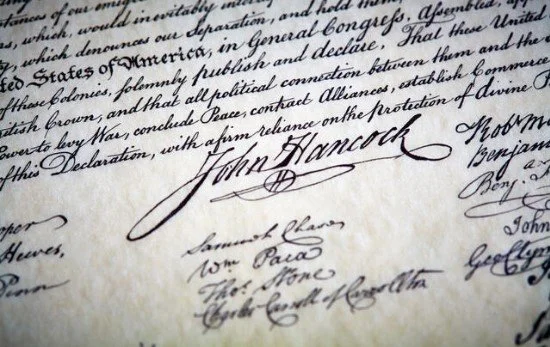 stances of our emigr
s, which, would inevitably inter
, which denounces our Separation, and hold them,
ted States of America, in General Congress, Assembled, app
of these Colonies, solemnly publish and declare, That these United
itish Crown, and that all political connection between them and the
ower to levy War, conclude Peace, contract Alliances, establish Commerce
of this Declaration, with a firm reliance on the protection of divine P
John Hancock
Rob^t M
Benjam
Benj. 
John
Geo Clym
oper
Hewes,
Penn
Samuel Chase
W^m Paca
Tho^s Stone
Charles Carroll of Carrollton